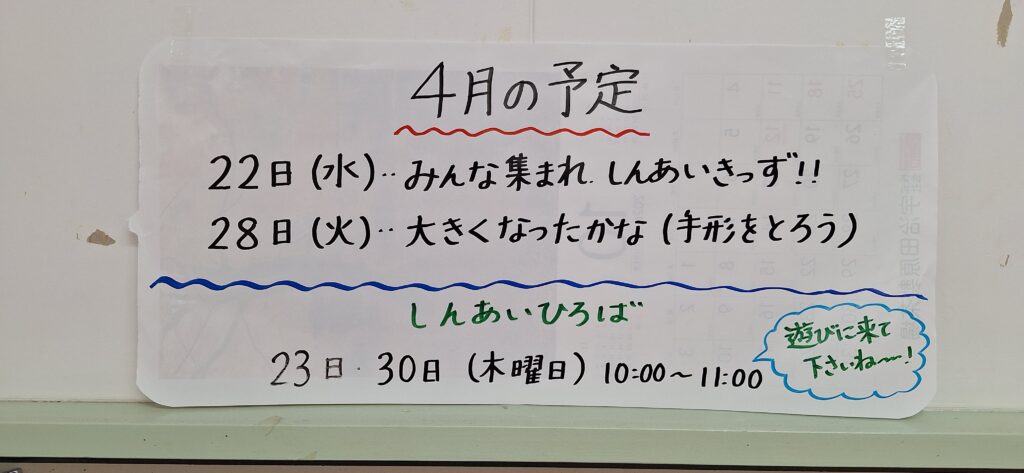 4月の予定
22日(水)‥みんな集まれ.しんあいきっず!!
28日(火)‥大きくなったかな(手形をとろう)
しんあいひろば
23日・30日(木曜日)10:00〜11:00
遊びに来て
下さいね〜!